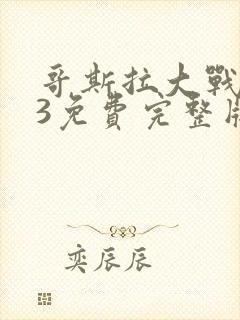 哥斯拉大戰
3免費完整
奕辰辰